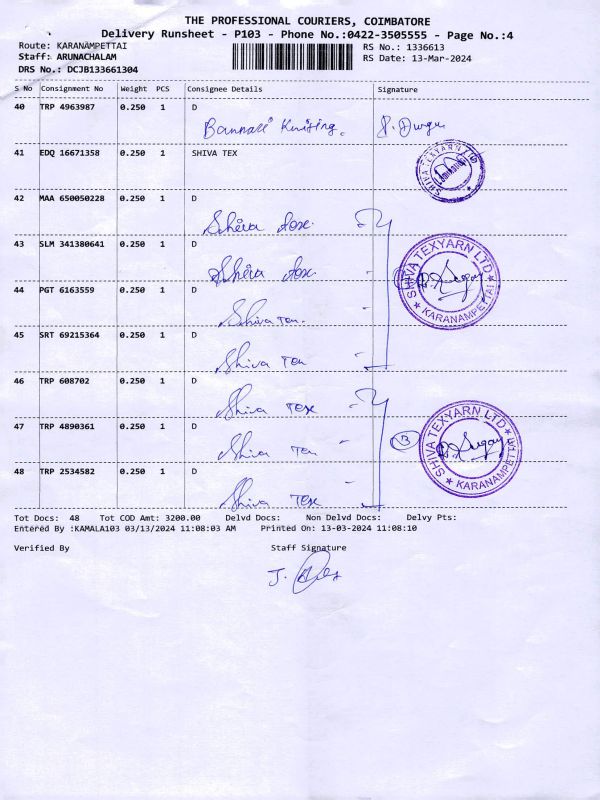 THE PROFESSIONAL COURIERS, COIMBATORE
Delivery Runsheet - P103 - Phone No.:0422-3505555 - Page No.:4
Route: KARANAMPETTAI RS No.: 1336613
Staff: ARUNACHALAM RS Date: 13-Mar-2024
DRS No.: DCJB133661304
S No Consignment No Weight PCS Consignee Details Signature
40 TRP 4963987 0.250 1 D
Bannari Knitting.
41 EDQ 16671358 0.250 1 SHIVA TEX
SHIVA TEXYARN LTD
42 MAA 650050228 0.250 1 D
Shiva Tex.
43 SLM 341380641 0.250 1 D
Shiva Tex.
SHIVA TEXYARN LTD
KARANAMPETTAI
44 PGT 6163559 0.250 1 D
Shiva Tex.
45 SRT 69215364 0.250 1 D
Shiva Tex
46 TRP 608702 0.250 1 D
Shiva Tex
47 TRP 4890361 0.250 1 D
Shiva Tex
SHIVA TEXYARN LTD
KARANAMPETTAI
48 TRP 2534582 0.250 1 D
Shiva Tex
Tot Docs: 48 Tot COD Amt: 3200.00 Delvd Docs: Non Delvd Docs: Delvy Pts:
Entered By :KAMALA103 03/13/2024 11:08:03 AM Printed On: 13-03-2024 11:08:10
Verified By Staff Signature